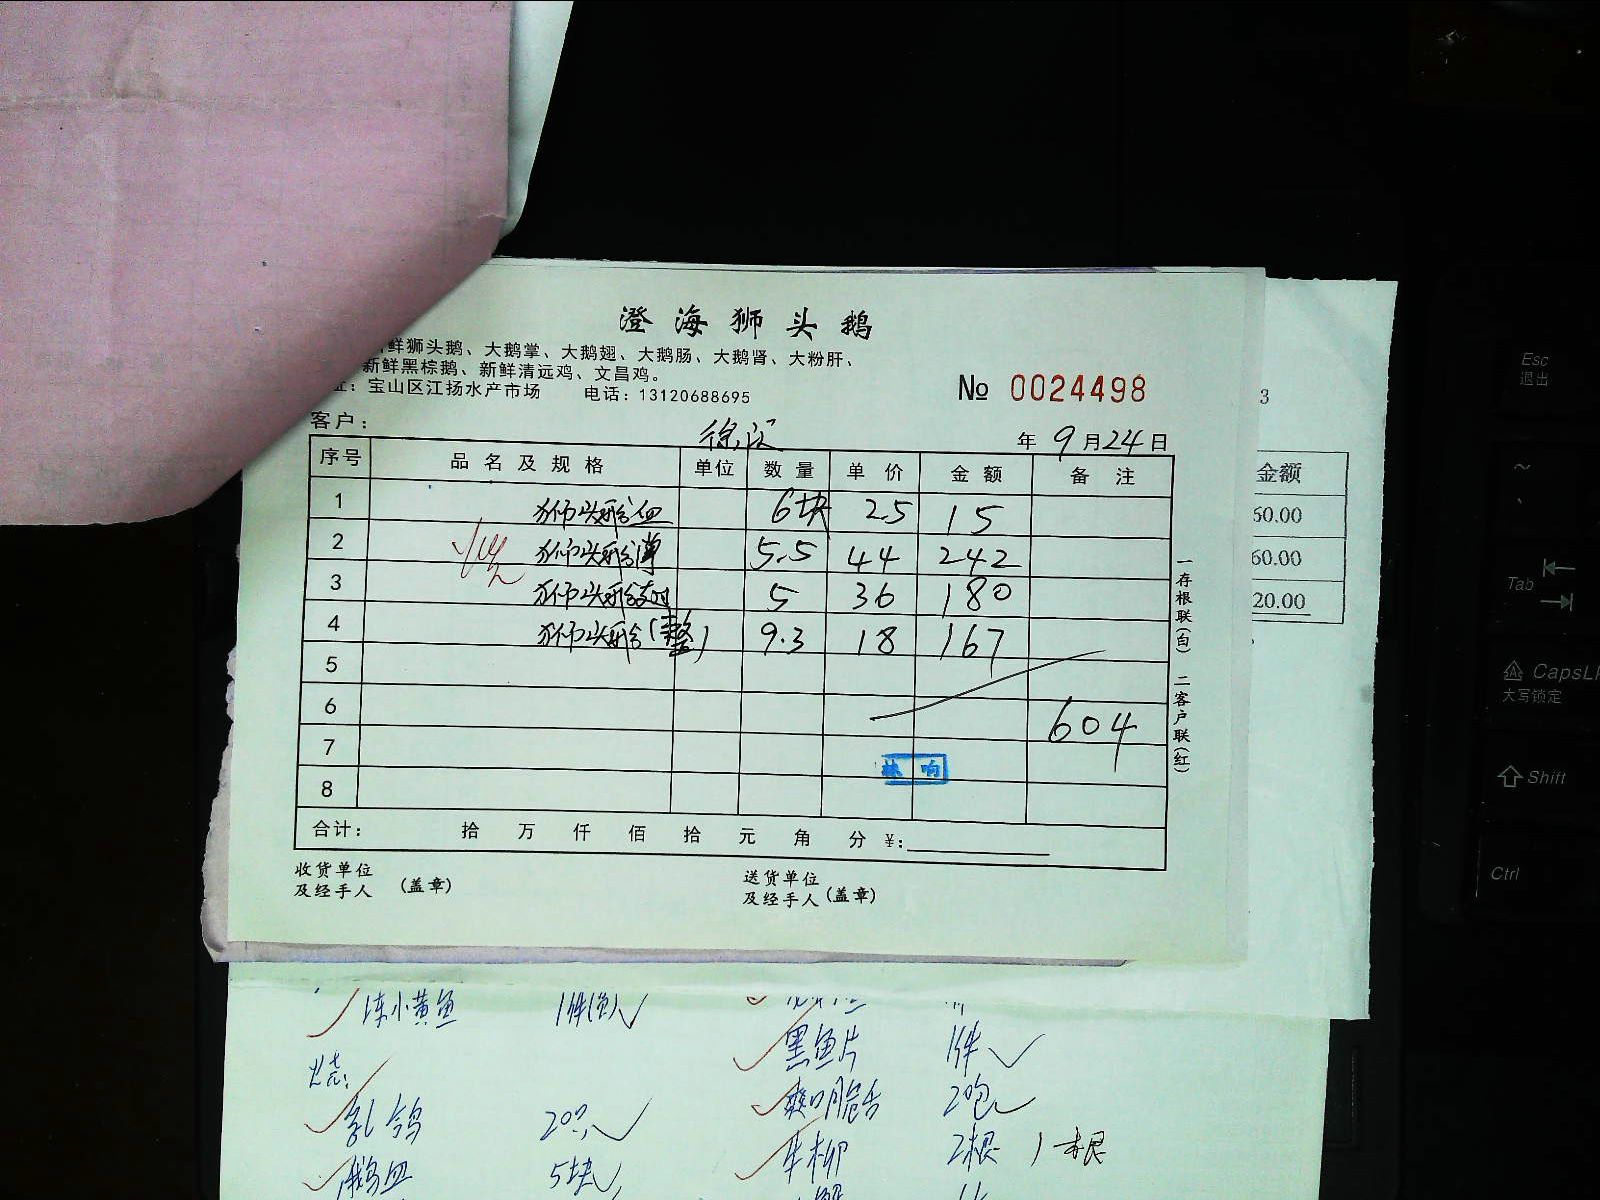 澄海狮头鹅
鲜狮头鹅、大鹅掌、大鹅翅、大鹅肠、大鹅肾、大粉肝、
新鲜黑棕鹅、新鲜清远鸡、文昌鸡。
址：宝山区江扬水产市场 电话：13120688695
№ 0024498
3
客户：
年 9月24日
序号 品名及规格 单位 数量 单价 金额 备注
1 狮头鹅血 6块 25 15
2 狮头鹅 5.5 44 242
3 狮头鹅翅 5 36 180
4 狮头鹅(整) 9.3 18 167
5
6 604
7
8
合计： 拾 万 仟 佰 拾 元 角 分 ¥:
收货单位
及经手人 (盖章)
送货单位
及经手人 (盖章)
一存根联(白) 二客户联(红)
金额
60.00
60.00
20.00
冻小黄鱼 1件
黑鱼片 1件
烧：
爽口脆舌 2包
乳鸽 20只
牛柳 2根 1根
鹅血 5块
Esc
退出
~
Tab
CapsL
大写锁定
Shift
Ctrl